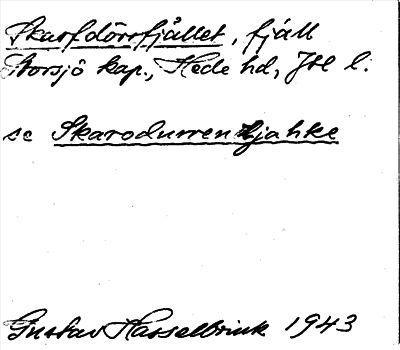 Skarfdörrfjället, fjäll
Storsjö kap., Hede hd, Jtl l.
se Skarodurren tjahke
Gustav Hasselbrink 1943